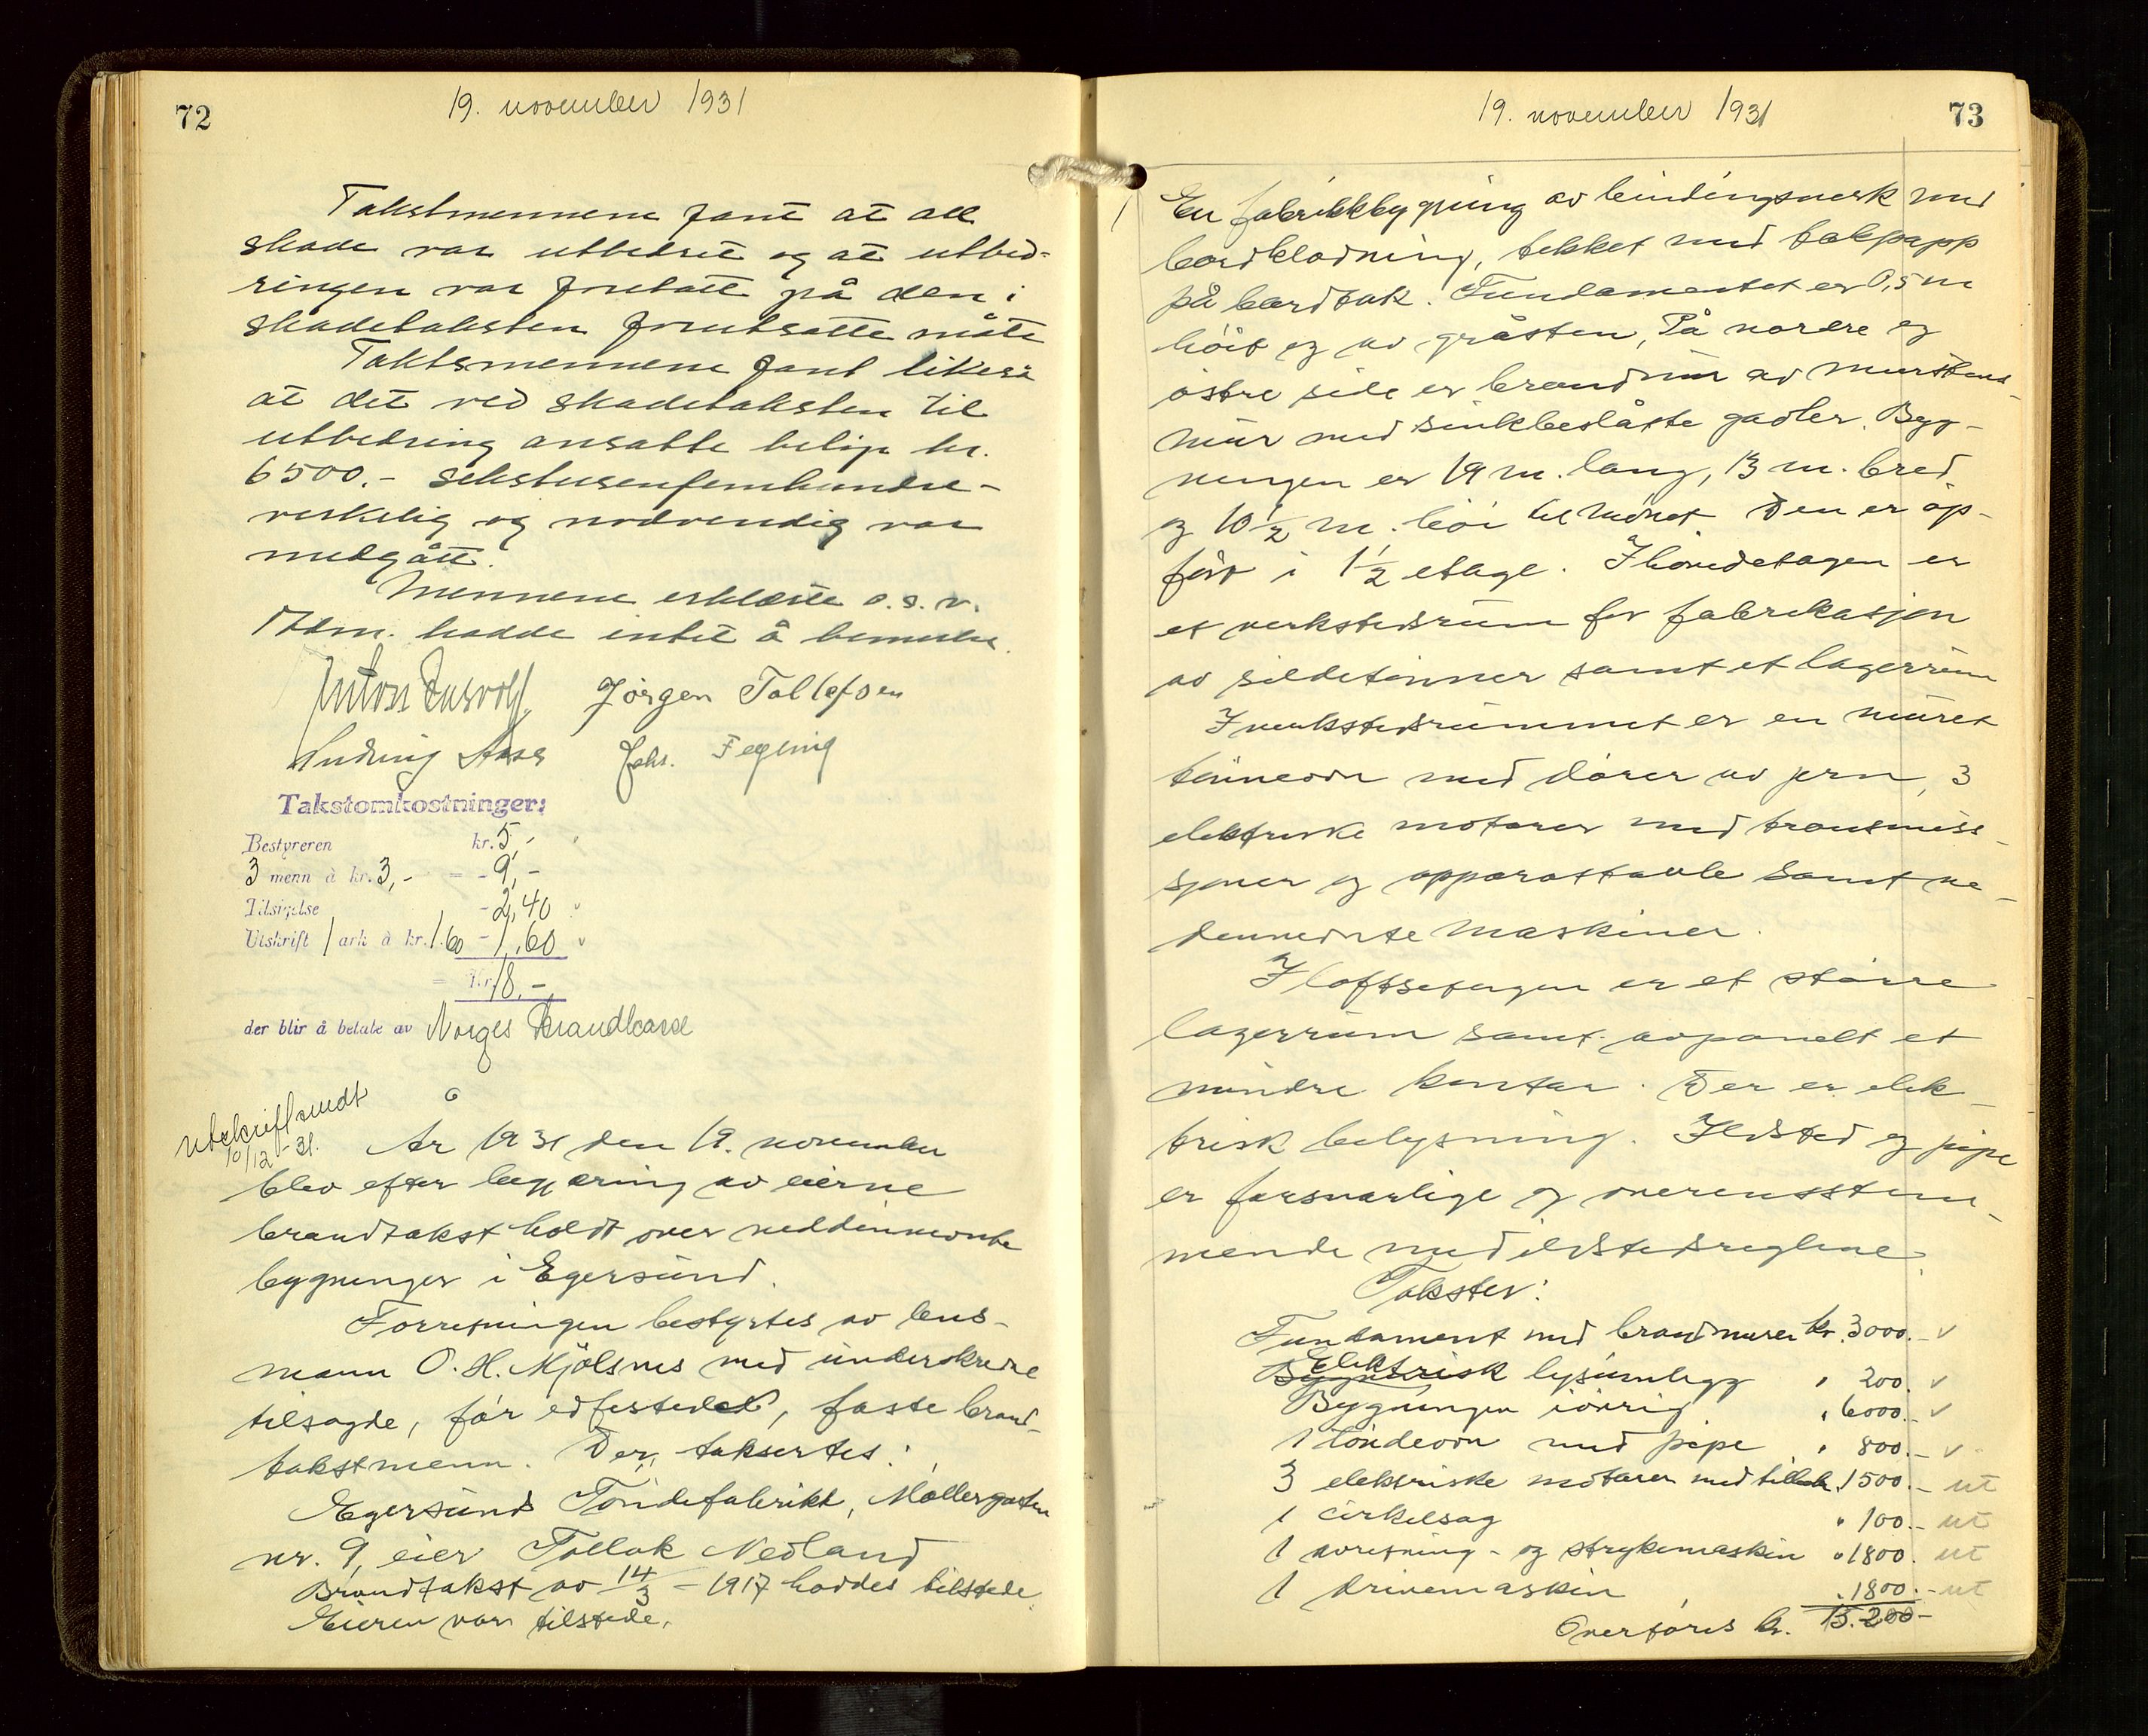 72
19. november 1931
Takstmennene fant at all
skade var utbedret og at utbed-
ringen var foretatt på den i
skadetaksten forutsatte måte
Takstmennene fant likeså
at det ved skadetaksten til
utbedring ansatte beløp kr.
6500.- sekstusenfemhundre-
verkelig og nødvendig var
medgått.
Mennene erklærte o.s.v.
hadde intet å bemerke.
Jørgen Tollefsen
Ludvig Aase Johs. Feyling
Takstomkostninger:
Bestyreren kr. 5,-
3 menn à kr. 3,- = - 9,-
Tilsigelse - 2,40 v
Utskrift 1 ark à kr. 1.60 - 1,60 v
= Kr. 18.-
der blir å betale av Norges Brandkasse
Utskrift sendt
10/12-31.
6
År 1931 den 19. november
blev efter begjæring av eierne
brandtakst holdt over neddennevnte
bygninger i Egersund.
Forretningen bestyrtes av lens-
mann O. H. Mjølsnes med underskrevne
tilsagte, før edfestede, faste brand-
takstmenn. Der taksertes:
Egersund Töndefabrikk, Møllergaten
nr. 9, eier Tollak Nedland
Brandtakst av 14/3 - 1917 haddes tilstede
Eieren var tilstede.
19. november 1931
73
1 En fabrikkbygning av bindingsverk med
bordklædning, tekket med takpapp
på bordtak. Fundamentet er 0,5 m
höit og av gråsten. På nordre og
östre side er brandmur av murstens-
mur med sinkbeslåtte gavler. Byg-
ningen er 19 m. lang, 13 m. bred
og 10 1/2 m. höi til mönet. Den er op-
fört i 1 1/2 etage. I hovedetagen er
et verkstedsrum for fabrikasjon
av sildetönner samt et lagerrum
I verkstedsrummet er en muret
tönneovn med dörer av jern, 3
elektriske motorer med transmis-
sjoner og apparattavle samt ne-
dennevnte maskiner.
I loftsetagen er et större
lagerrum samt avpanelt et
mindre kontor. Der er elek-
trisk belysning. Ildsted og pipe
er forsvarlige og overensstem-
mende med ildstedsreglene.
Takster:
Fundament med brandmurer kr. 3000.- v
Elektrisk lysanlegg " 200.- v
Bygningen iövrig " 6000.- v
1 töndeovn med pipe " 800.- v
3 elektriske motorer med tilbeh. 1500.- ut
1 cirkelsag " 100.- ut
1 avretning- og strykemaskin " 1800.- ut
1 drivemaskin " 1800.- ut
Overföres kr. 15.200-